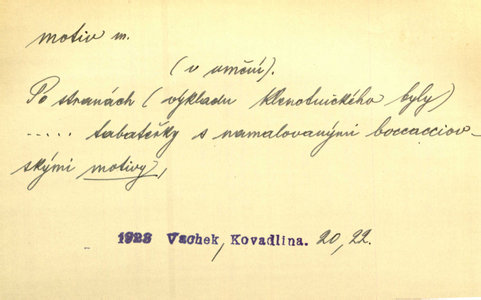 motiv m.
(v umění).
Po stranách (výkladu klenotnického byly)
..... tabatěrky s namalovanými boccacciov-
skými motivy,
1923 Vachek, Kovadlina. 20, 22.